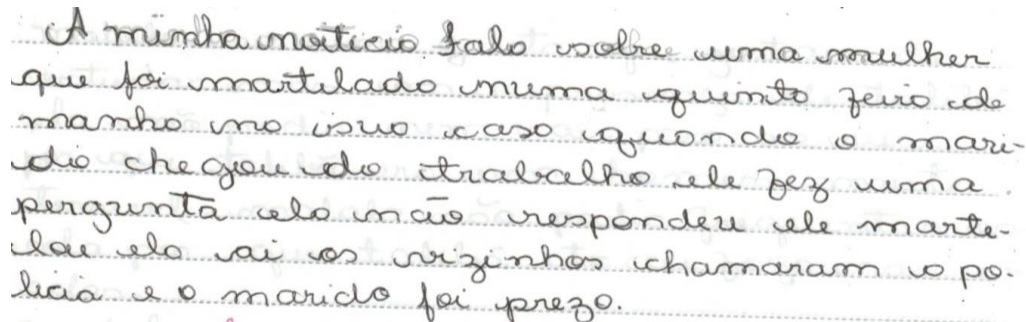 A minha noiticia fala sobre uma mulher
que foi martilada numa quinta feira de
manha na sua casa quando o mari-
do chegou do trabalho ele fez uma
pergunta ela não respondeu ele marte-
lou ela ai os vizinhos chamaram a po-
licia e o marido foi prezo.